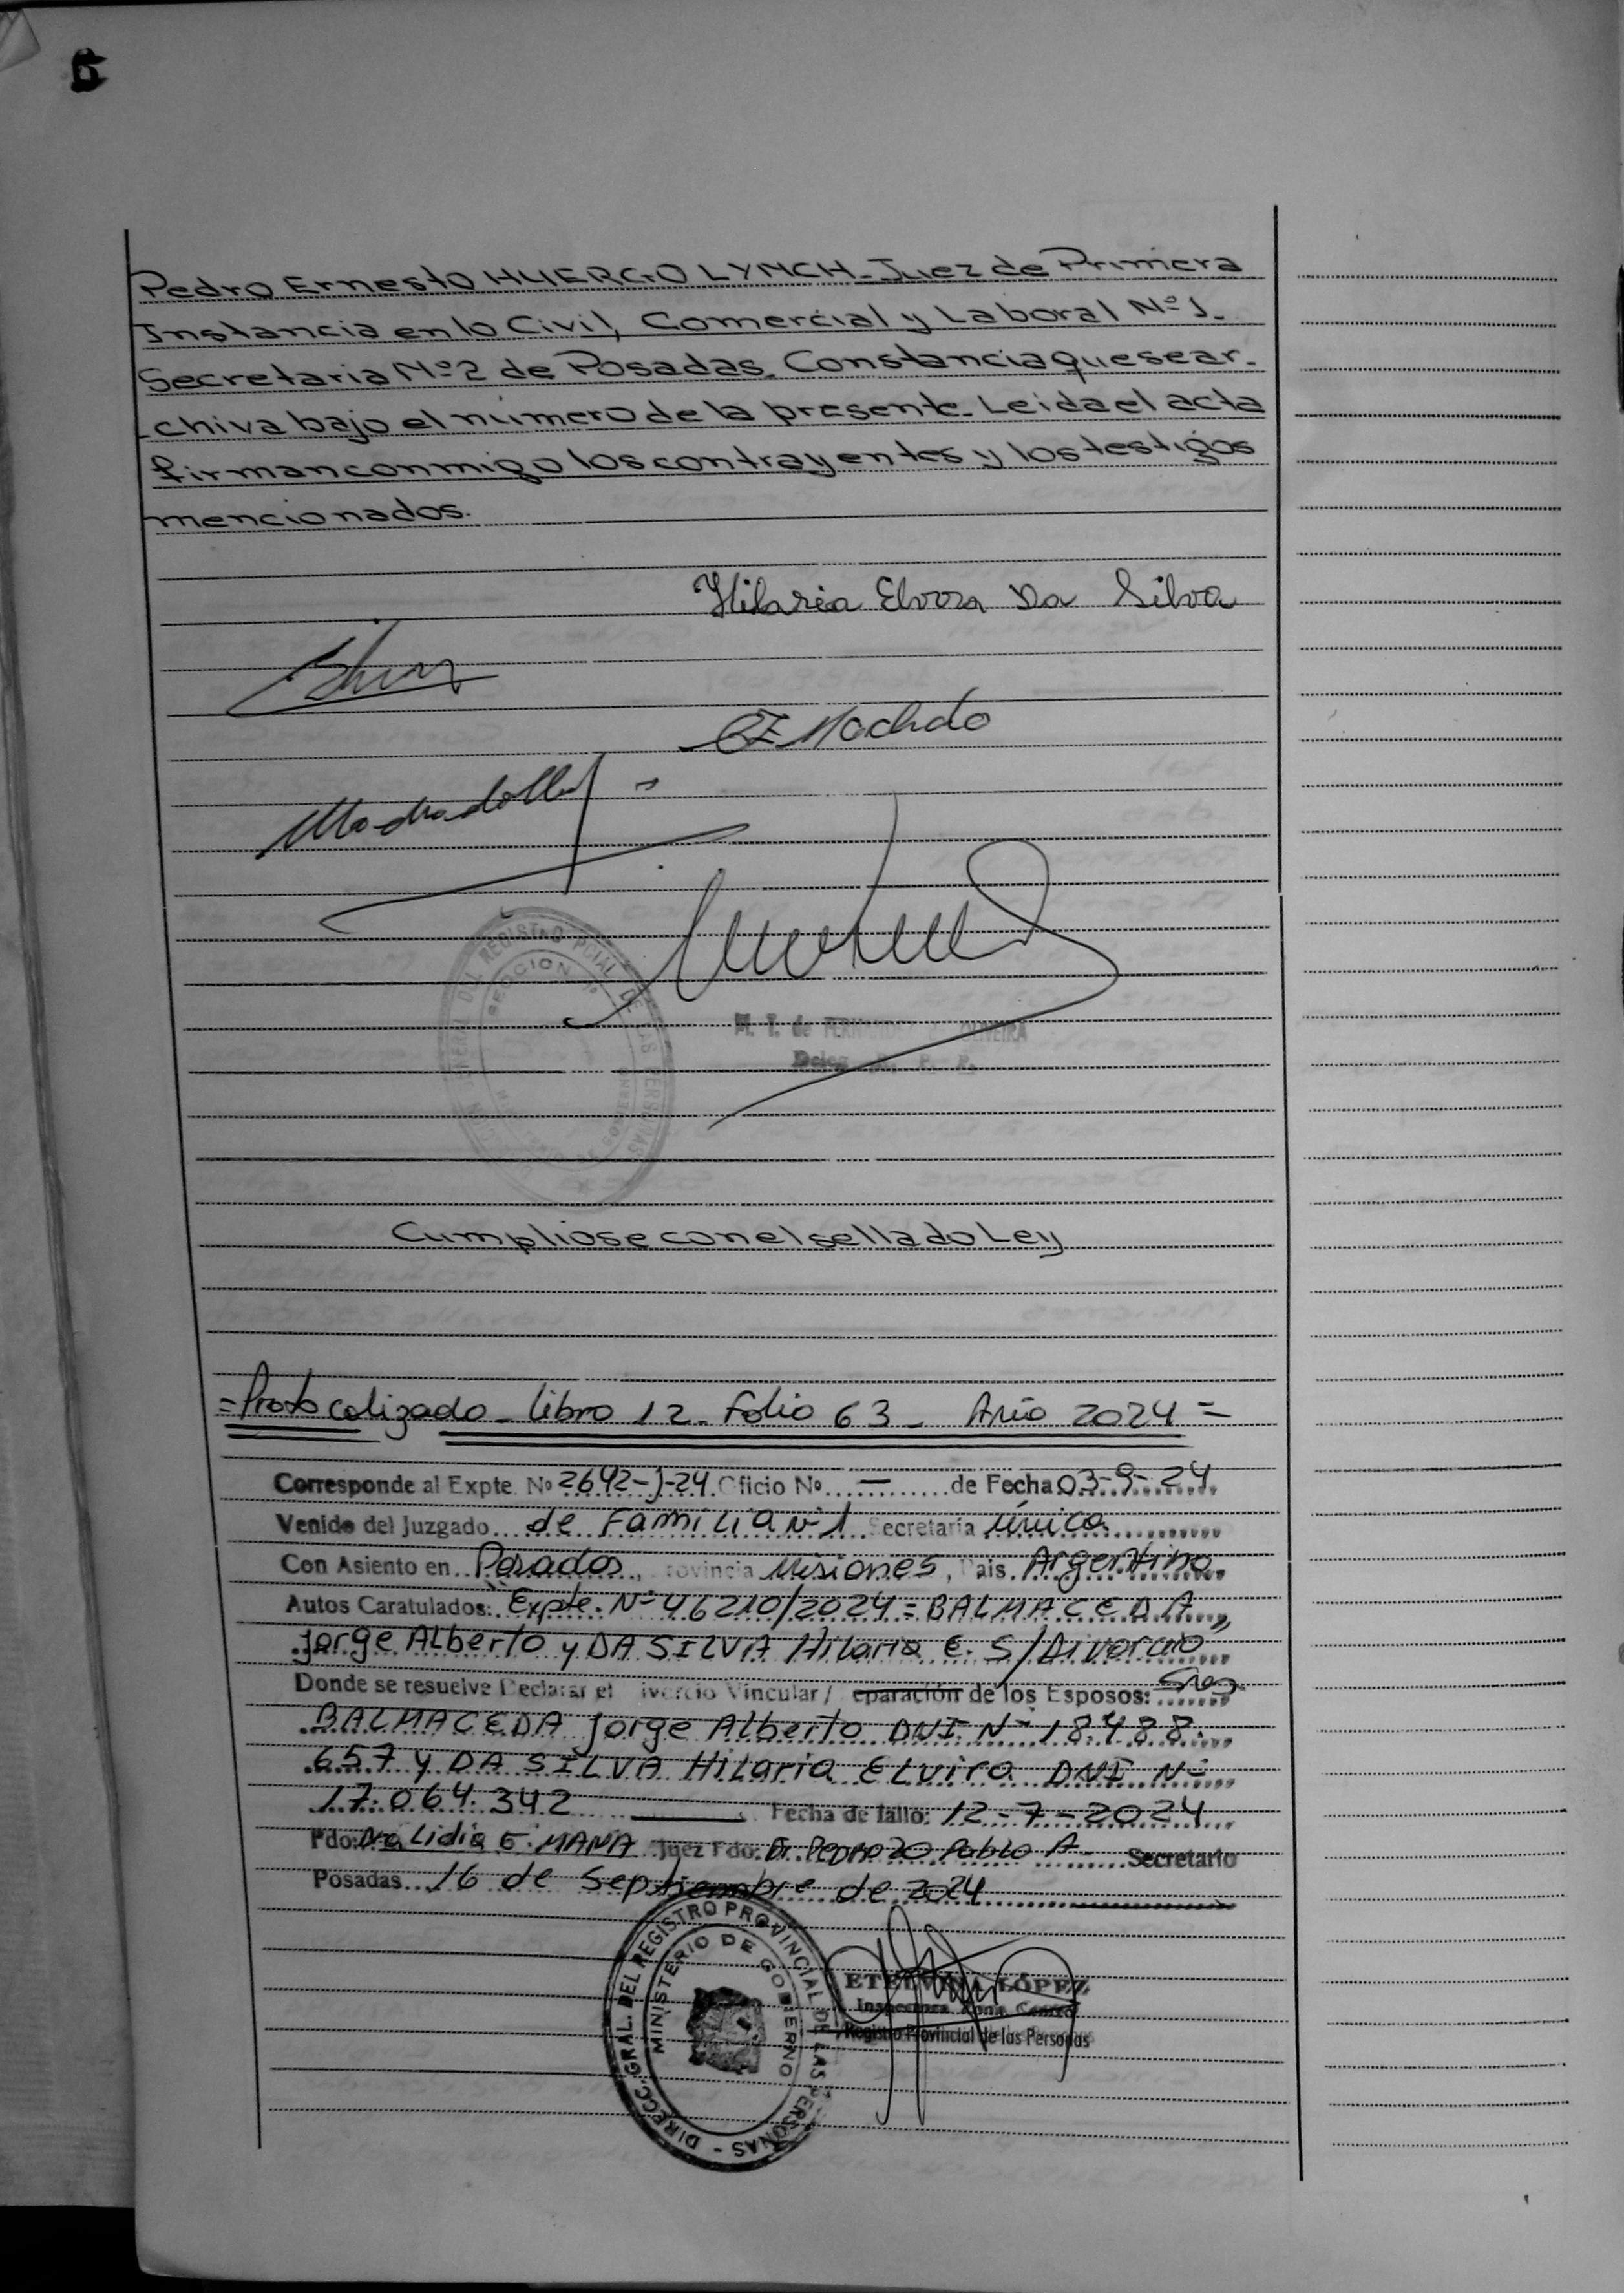 6
Pedro Ernesto HUERGO LYNCH - Juez de Primera
Instancia en lo Civil, Comercial y Laboral Nº 1.
Secretaria Nº 2 de Posadas. Constancia que se ar-
chiva bajo el número de la presente. Leida el acta
firman conmigo los contrayentes y los testigos
mencionados.
Hilaria Elvira Da Silva
Machado
M. T. de OLIVEIRA
Deleg. R. P. P.
REGISTRO PCIAL DE LAS PERSONAS
Cumpliose con el sellado Ley
= Protocolizado - Libro 12 - Folio 63 - Año 2024 =
Corresponde al Expte. Nº 2642-J-24 Oficio Nº — de Fecha 03-9-24
Venido del Juzgado de Familia Nº 1 Secretaria única
Con Asiento en Posadas, Provincia Misiones, Pais Argentina
Autos Caratulados: "Expte. Nº 46210/2024 = BALMACEDA
Jorge Alberto y DA SILVA Hilaria E. S/Divorcio"
Donde se resuelve Declarar el Divorcio Vincular / Separación de los Esposos: Sres.
BALMACEDA Jorge Alberto DNI Nº 18.488.
657 y DA SILVA Hilaria Elvira DNI Nº
17.064.342 Fecha de fallo: 12-7-2024
Fdo: Dra Lidia E. MANA Juez Fdo: Dr. PEDROZO Pablo A. Secretario
Posadas 16 de Septiembre de 2024
DIRECC. GRAL. DEL REGISTRO PROVINCIAL DE LAS PERSONAS -
MINISTERIO DE GOBIERNO
ETELVINA LÓPEZ
Inspectora Zona Centro
Registro Provincial de las Personas